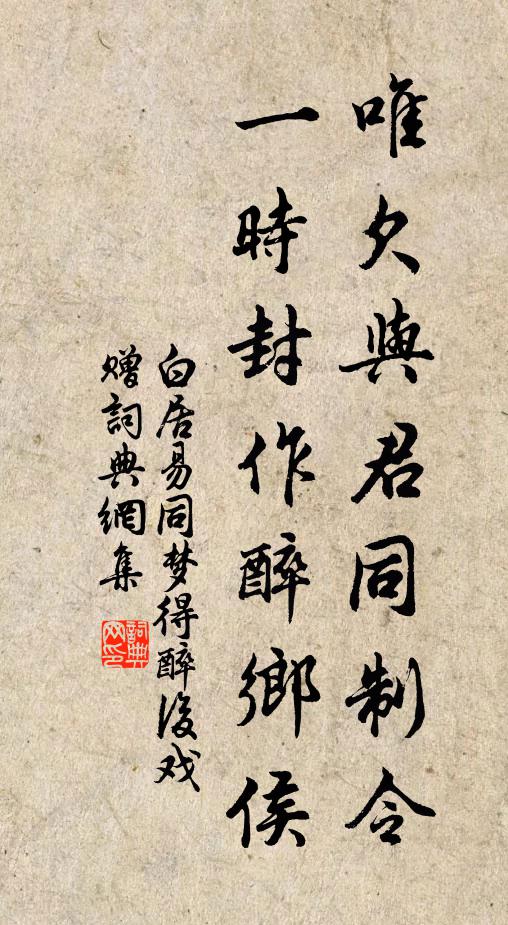 唯欠與君同制令
一時封作醉鄉侯
白居易同梦得醉後戏
赠詞典網集
詞典
网印